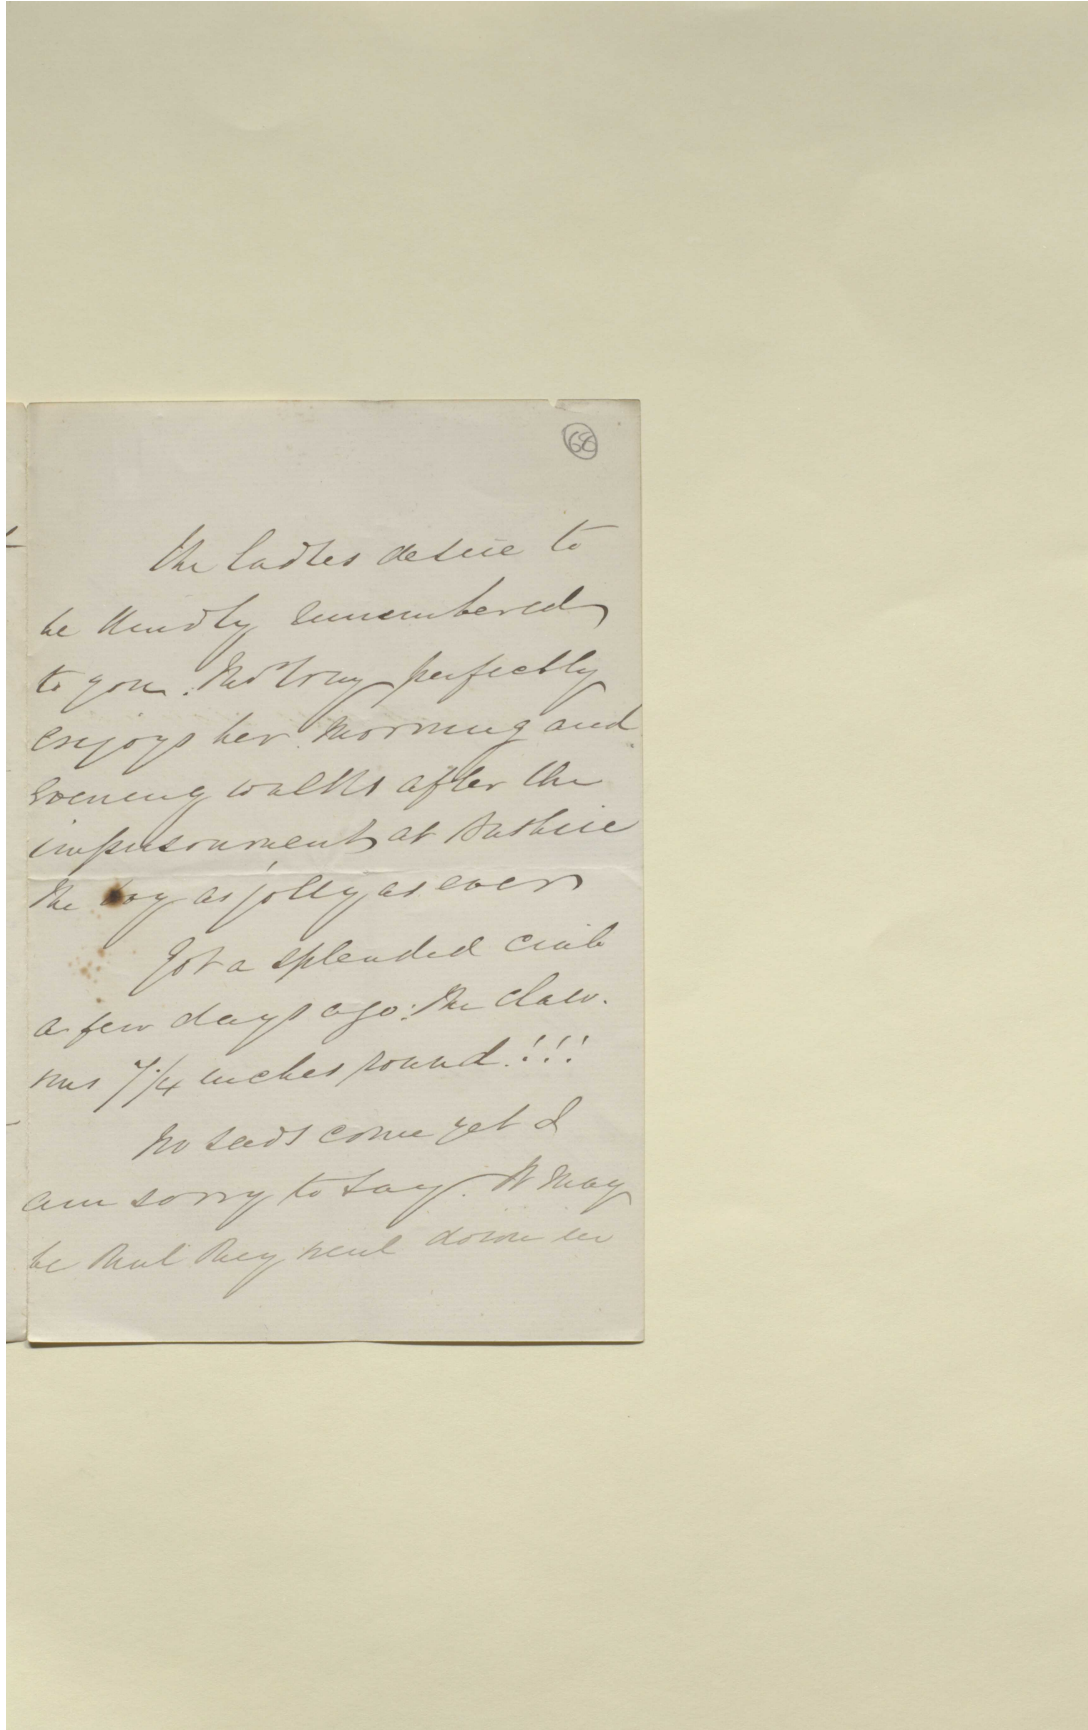 68
The ladies desire to
be kindly remembered
to you. perfectly
enjoys her morning and
evening walks after the
imprisonment at
The boy as jolly as ever
Got a splendid crab
a few days ago: the claw.
was 7¼ inches round!!!
No seeds come yet I
am sorry to say. It may
be that they went down in